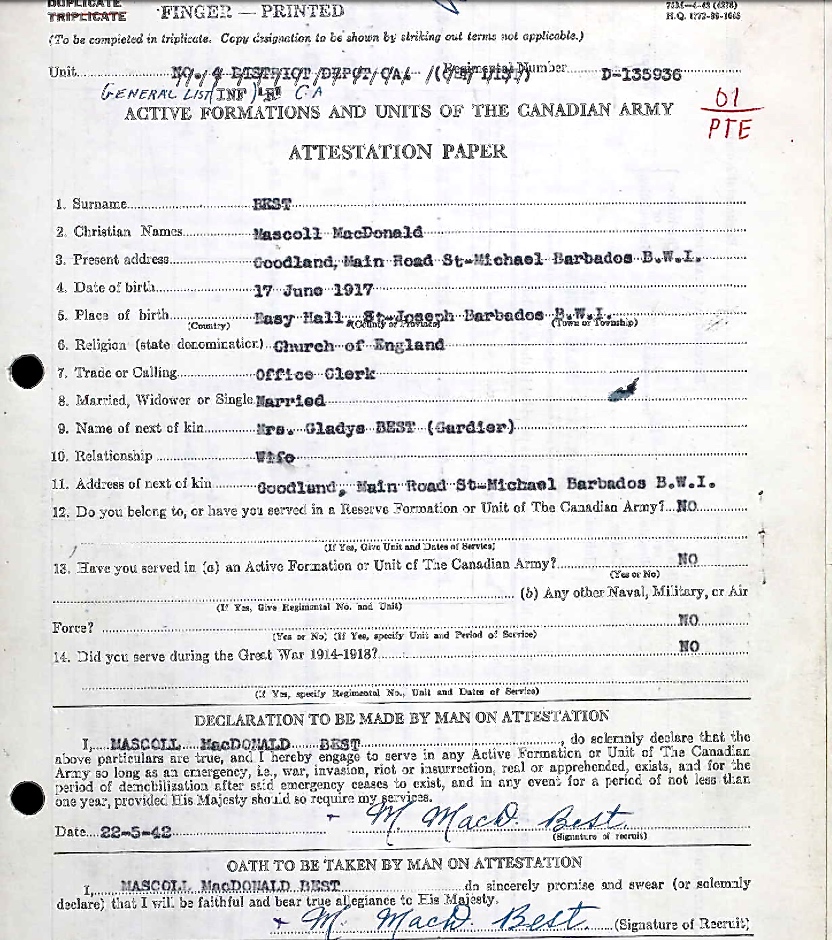 DUPLICATE
TRIPLICATE
FINGER — PRINTED
H.Q. 1772-89-1065
(To be completed in triplicate. Copy designation to be shown by striking out terms not applicable.)
Unit NO. 4 DISTRICT DEPOT CA Regimental Number D-135936
GENERAL LIST (INF) "R" CA
ACTIVE FORMATIONS AND UNITS OF THE CANADIAN ARMY
01
PTE
ATTESTATION PAPER
1. Surname BEST
2. Christian Names Mascoll MacDonald
3. Present address Goodland, Main Road St-Michael Barbados B.W.I.
4. Date of birth 17 June 1917
5. Place of birth Easy Hall, St-Joseph Barbados B.W.I.
(Country) (County or Province) (Town or Township)
6. Religion (state denomination) Church of England
7. Trade or Calling Office Clerk
8. Married, Widower or Single Married
9. Name of next of kin Mrs. Gladys BEST (Gardier)
10. Relationship Wife
11. Address of next of kin Goodland, Main Road St-Michael Barbados B.W.I.
12. Do you belong to, or have you served in a Reserve Formation or Unit of The Canadian Army? NO
(If Yes, Give Unit and Dates of Service)
13. Have you served in (a) an Active Formation or Unit of The Canadian Army? NO
(Yes or No)
(b) Any other Naval, Military, or Air
(If Yes, Give Regimental No. and Unit)
Force? NO
(Yes or No) (If Yes, specify Unit and Period of Service)
14. Did you serve during the Great War 1914-1918? NO
(If Yes, specify Regimental No., Unit and Dates of Service)
DECLARATION TO BE MADE BY MAN ON ATTESTATION
I, MASCOLL MacDONALD BEST, do solemnly declare that the
above particulars are true, and I hereby engage to serve in any Active Formation or Unit of The Canadian
Army so long as an emergency, i.e., war, invasion, riot or insurrection, real or apprehended, exists, and for the
period of demobilization after said emergency ceases to exist, and in any event for a period of not less than
one year, provided His Majesty should so require my services.
Date 22-5-42 M. MacD. Best.
(Signature of recruit)
OATH TO BE TAKEN BY MAN ON ATTESTATION
I, MASCOLL MacDONALD BEST do sincerely promise and swear (or solemnly
declare) that I will be faithful and bear true allegiance to His Majesty.
M. MacD. Best. (Signature of Recruit)